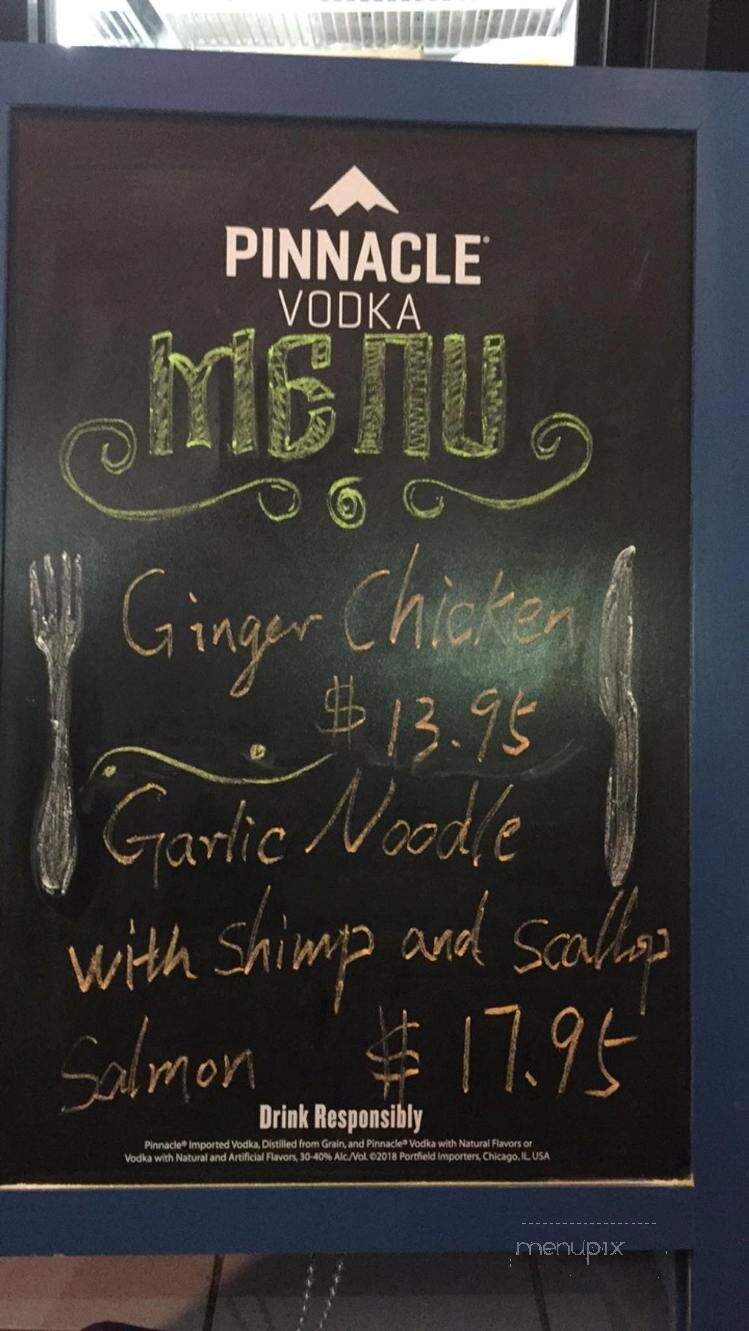 PINNACLE®
VODKA
MENU
Ginger Chicken
$13.95
Garlic Noodle
with Shimp and Scallop
Salmon $17.95
Drink Responsibly
Pinnacle® Imported Vodka, Distilled from Grain, and Pinnacle® Vodka with Natural Flavors or
Vodka with Natural and Artificial Flavors, 30-40% Alc./Vol. ©2018 Portfield Importers, Chicago, IL, USA
menupix